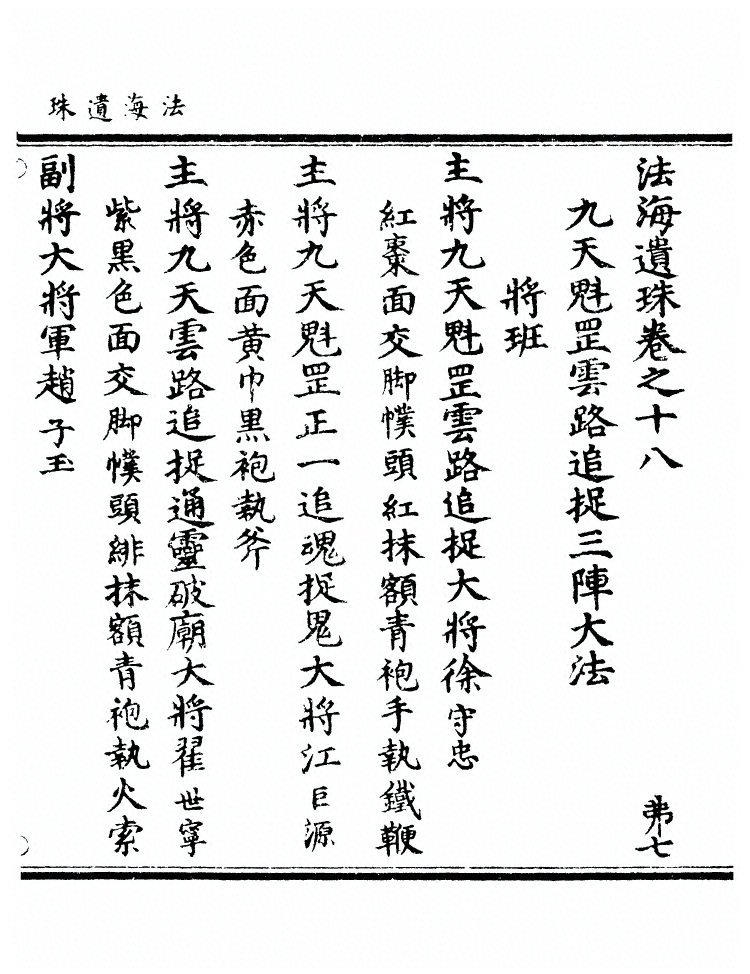 法海遺珠
法海遺珠卷之十八
弗七
九天魁罡雲路追捉三陣大法
將班
主將九天魁罡雲路追捉大將徐守忠
紅棗面交脚幞頭紅抹額青袍手執鐵鞭
主將九天魁罡正一追魂捉鬼大將江巨源
赤色面黃巾黑袍執斧
主將九天雲路追捉通靈破廟大將翟世寧
紫黑色面交脚幞頭緋抹額青袍執火索
副將大將軍趙子玉